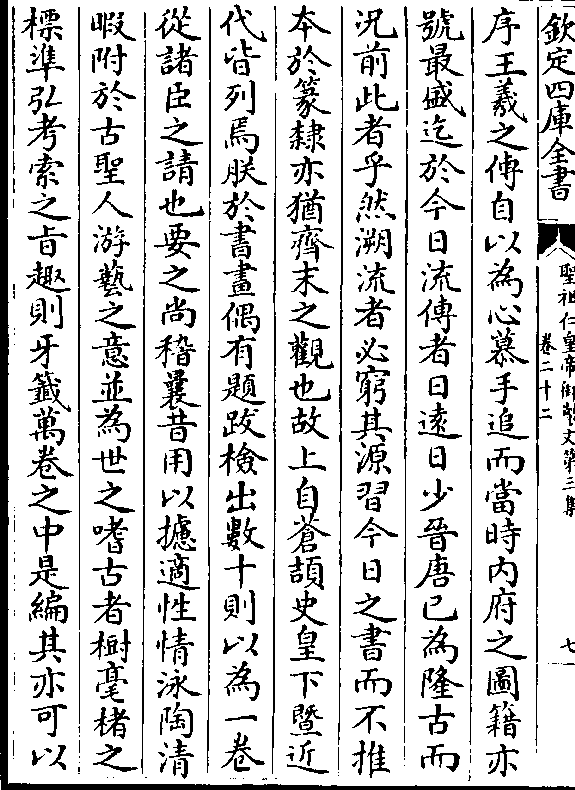 欽定四庫全書
聖祖仁皇帝御製文第三集
卷二十二
七
序王羲之傳自以為心慕手追而當時内府之圖籍亦
號最盛迄於今日流傳者日逺日少晉唐已為隆古而
況前此者乎然溯流者必窮其源習今日之書而不推
本於篆隸亦猶齊末之觀也故上自蒼頡史皇下暨近
代皆列焉朕於書畫偶有題跋檢出數十則以為一卷
從諸臣之請也要之尚稽曩昔用以攄適性情泳陶清
暇附於古聖人游藝之意並為世之嗜古者樹毫楮之
標凖弘考索之㫖趣則牙籤萬卷之中是編其亦可以